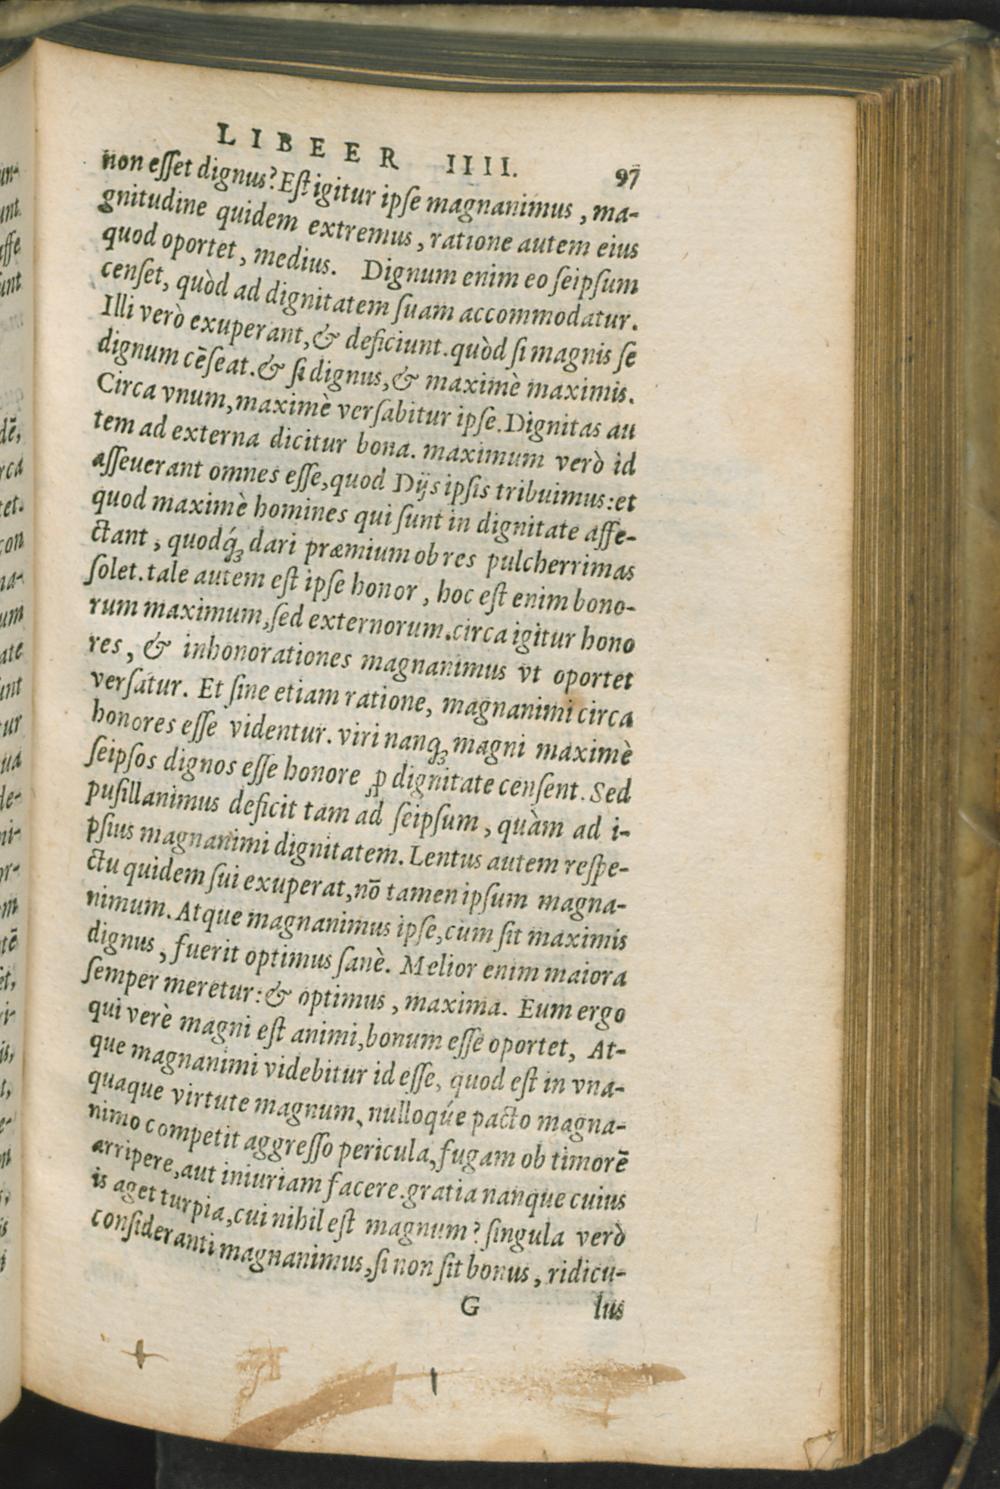 LIBEER IIII. 97
non esset dignus? Est igitur ipse magnanimus, ma-
gnitudine quidem extremus, ratione autem eius
quod oportet, medius. Dignum enim eo seipsum
censet, quòd ad dignitatem suam accommodatur.
Illi verò exuperant, & deficiunt. quòd si magnis se
dignum cēseat. & si dignus, & maximè maximis.
Circa vnum, maximè versabitur ipse. Dignitas au
tem ad externa dicitur bona. maximum verò id
asseuerant omnes esse, quod Dijs ipsis tribuimus: et
quod maximè homines qui sunt in dignitate affe-
ctant, quodq́; dari præmium ob res pulcherrimas
solet. tale autem est ipse honor, hoc est enim bono-
rum maximum, sed externorum. circa igitur hono
res, & inhonorationes magnanimus vt oportet
versatur. Et sine etiam ratione, magnanimi circa
honores esse videntur. viri nanq; magni maximè
seipsos dignos esse honore ꝓ dignitate censent. Sed
pusillanimus deficit tam ad seipsum, quàm ad i-
psius magnanimi dignitatem. Lentus autem respe-
ctu quidem sui exuperat, nō tamen ipsum magna-
nimum. Atque magnanimus ipse, cum sit maximis
dignus, fuerit optimus sanè. Melior enim maiora
semper meretur: & optimus, maxima. Eum ergo
qui verè magni est animi, bonum esse oportet, At-
que magnanimi videbitur id esse, quod est in vna-
quaque virtute magnum, nulloqúe pacto magna-
nimo competit aggresso pericula, fugam ob timorē
arripere, aut iniuriam facere. gratia nanque cuius
is aget turpia, cui nihil est magnum? singula verò
consideranti magnanimus, si non sit bonus, ridicu-
G lus